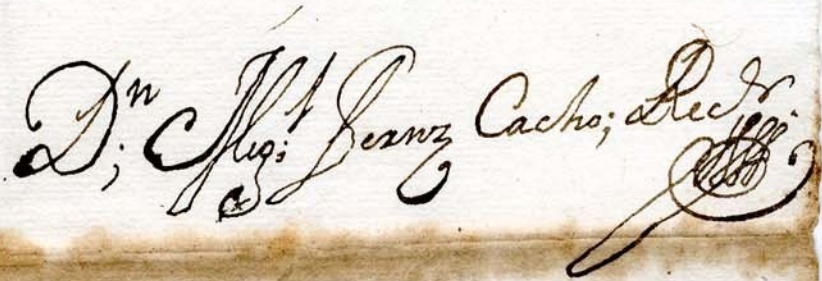 Dn; Migl Fernz Cacho; Rectr